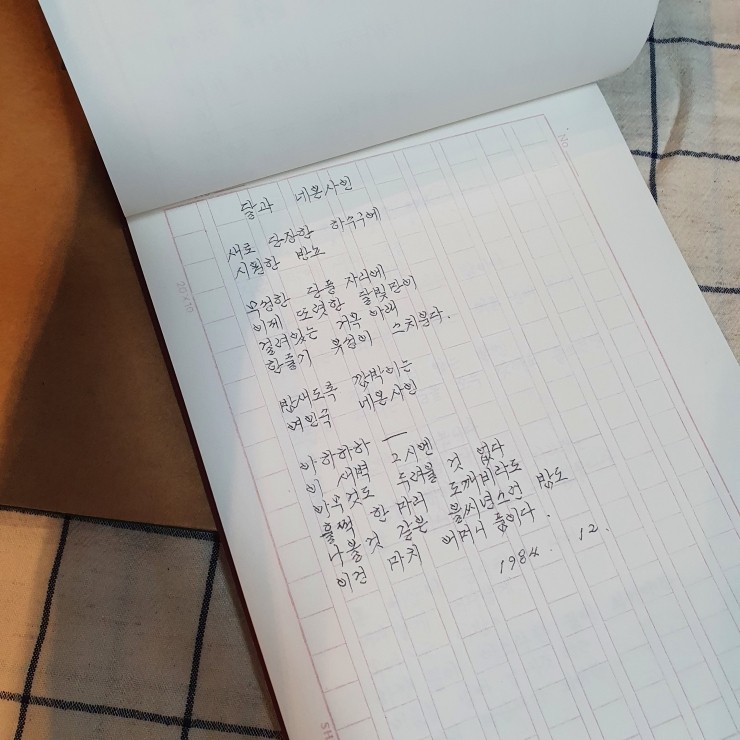 달과 네온사인
새로 단장한 하수구에
시원한 반뇨
무성한 담쟁 자리에
이제 또렷한 달빛만이
걸려있는 거목 아래
한줄기 유성이 스치운다.
밤새도록 깜박이는
여인숙 네온사인
아하하하 —
이 새벽 2시엔
아무것도 두려울 것 없다
훌쩍 한 마리 도깨비라도
나올 것 같은 을씨년스런 밤도
이건 마치 어머니 품이다.
1984. 12.
No
20×10
SH